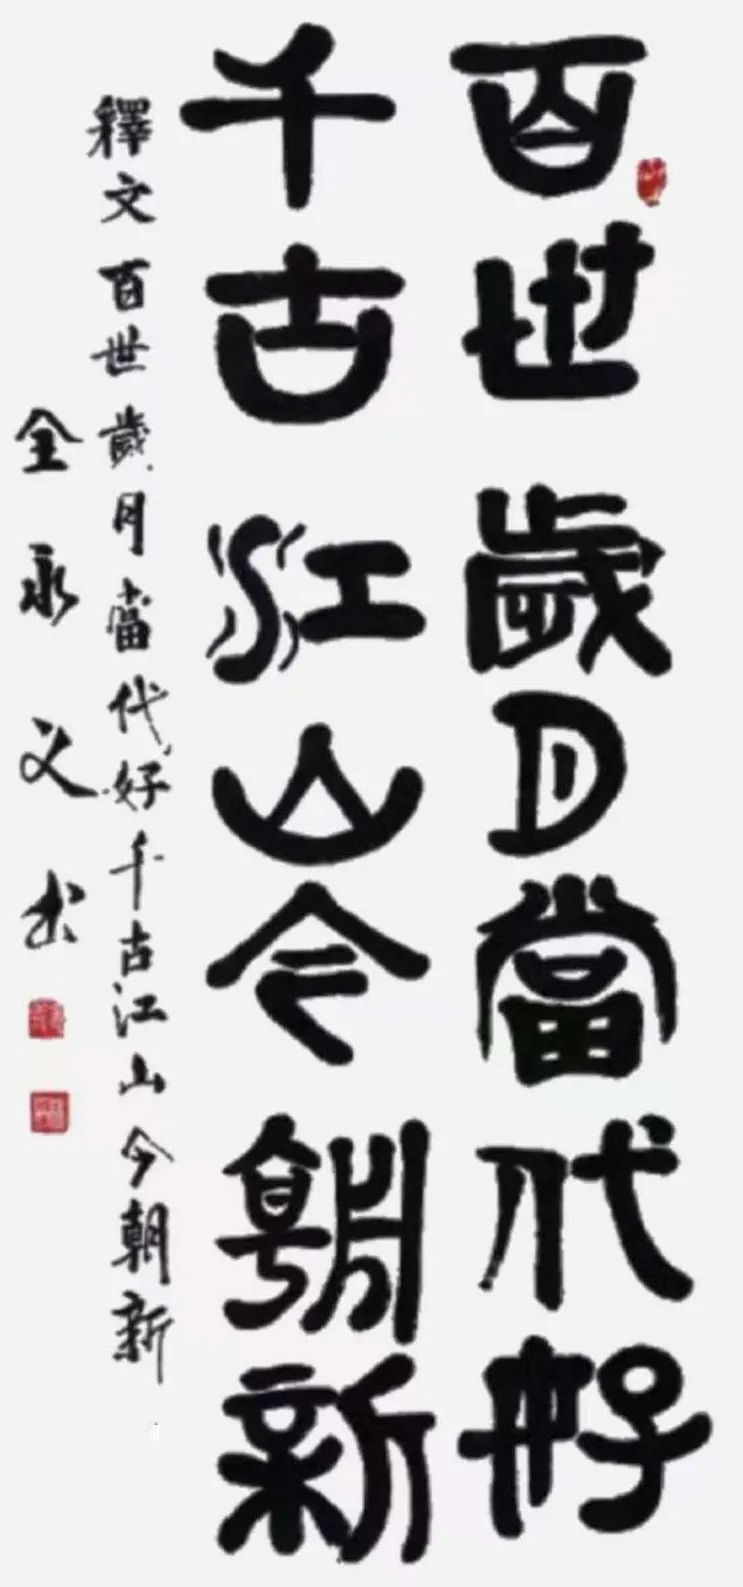 百世歲月當代好
千古江山今朝新
釋文百世歲月當代好千古江山今朝新
全永义书